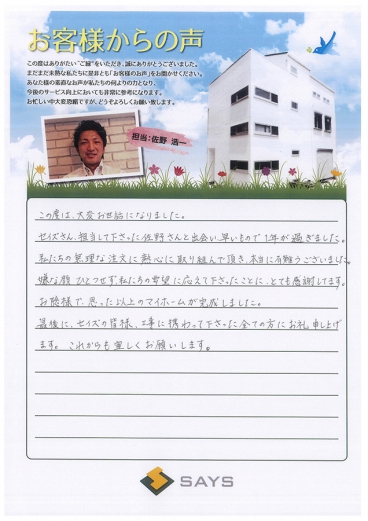 お客様からの声
この度はありがたい"ご縁"をいただき、誠にありがとうございました。
まだまだ未熟な私たちに是非とも「お客様のお声」をお聞かせください。
あなた様の素直なお声が私たちの何よりの力となり、
今後のサービス向上においても非常に参考になります。
お忙しい中大変恐縮ですが、どうぞよろしくお願い致します。
担当:佐野 浩一
この度は、大変お世話になりました。
セイズさん、担当して下さった佐野さんと出会い、早いもので1年が過ぎました。
私たちの無理な注文に熱心に取り組んで頂き、本当に有難うございました。
嫌な顔ひとつせず、私たちの要望に応えて下さったことに、とても感謝してます。
お陰様で、思った以上のマイホームが完成しました。
最後に、セイズの皆様、工事に携わって下さった全ての方にお礼申し上げ
ます。これからも宜しくお願いします。
SAYS